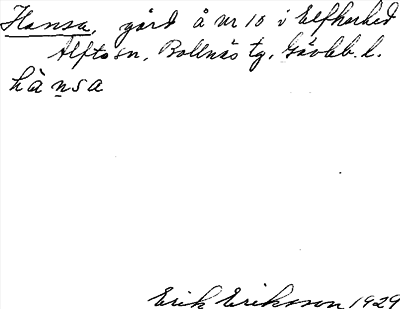 Hansa, gård å nr 10 i Elfkarhed
Alfta sn, Bollnäs tg, Gävleb. l.
hànsa
Erik Eriksson 1929